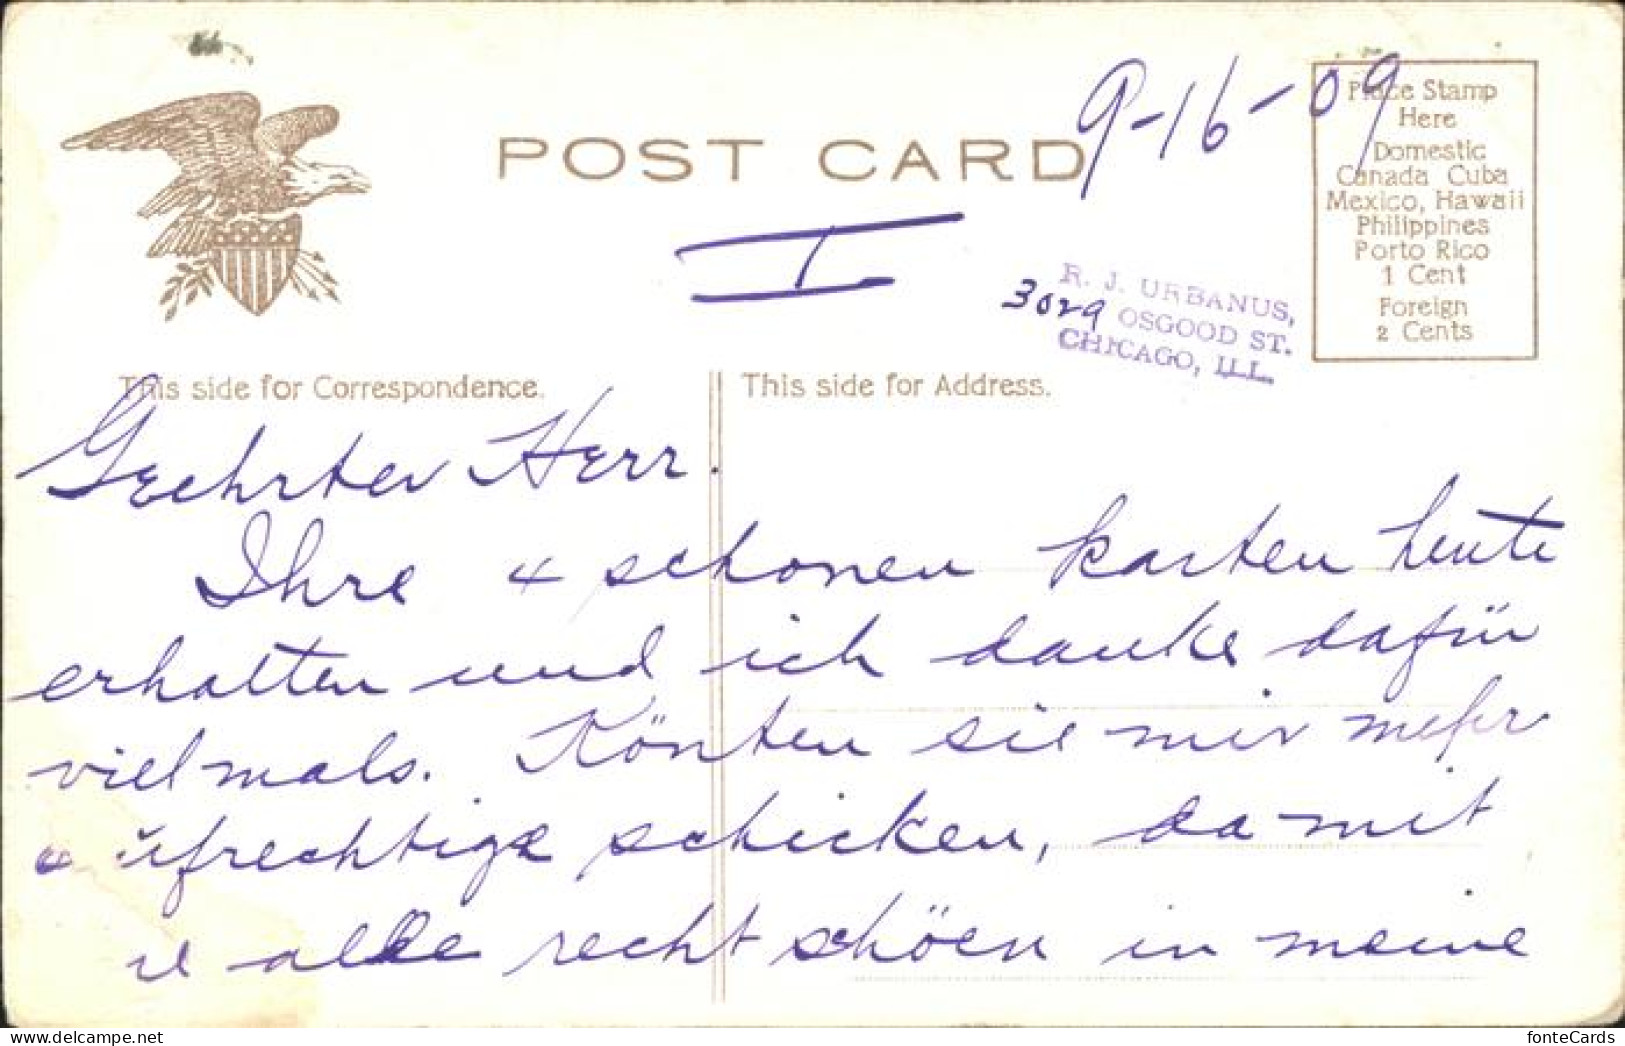 POST CARD
9-16-09
I
Place Stamp
Here
Domestic
Canada Cuba
Mexico, Hawaii
Philippines
Porto Rico
1 Cent
Foreign
2 Cents
R. J. URBANUS,
3029 OSGOOD ST.
CHICAGO, ILL.
This side for Correspondence.
This side for Address.
Geehrter Herr.
Ihre 4 schonen karten heute
erhalten und ich danke dafür
vielmals. Könten sie mir mehr
aufrechtige schicken, damit
alle recht schöen in meine
fonteCards